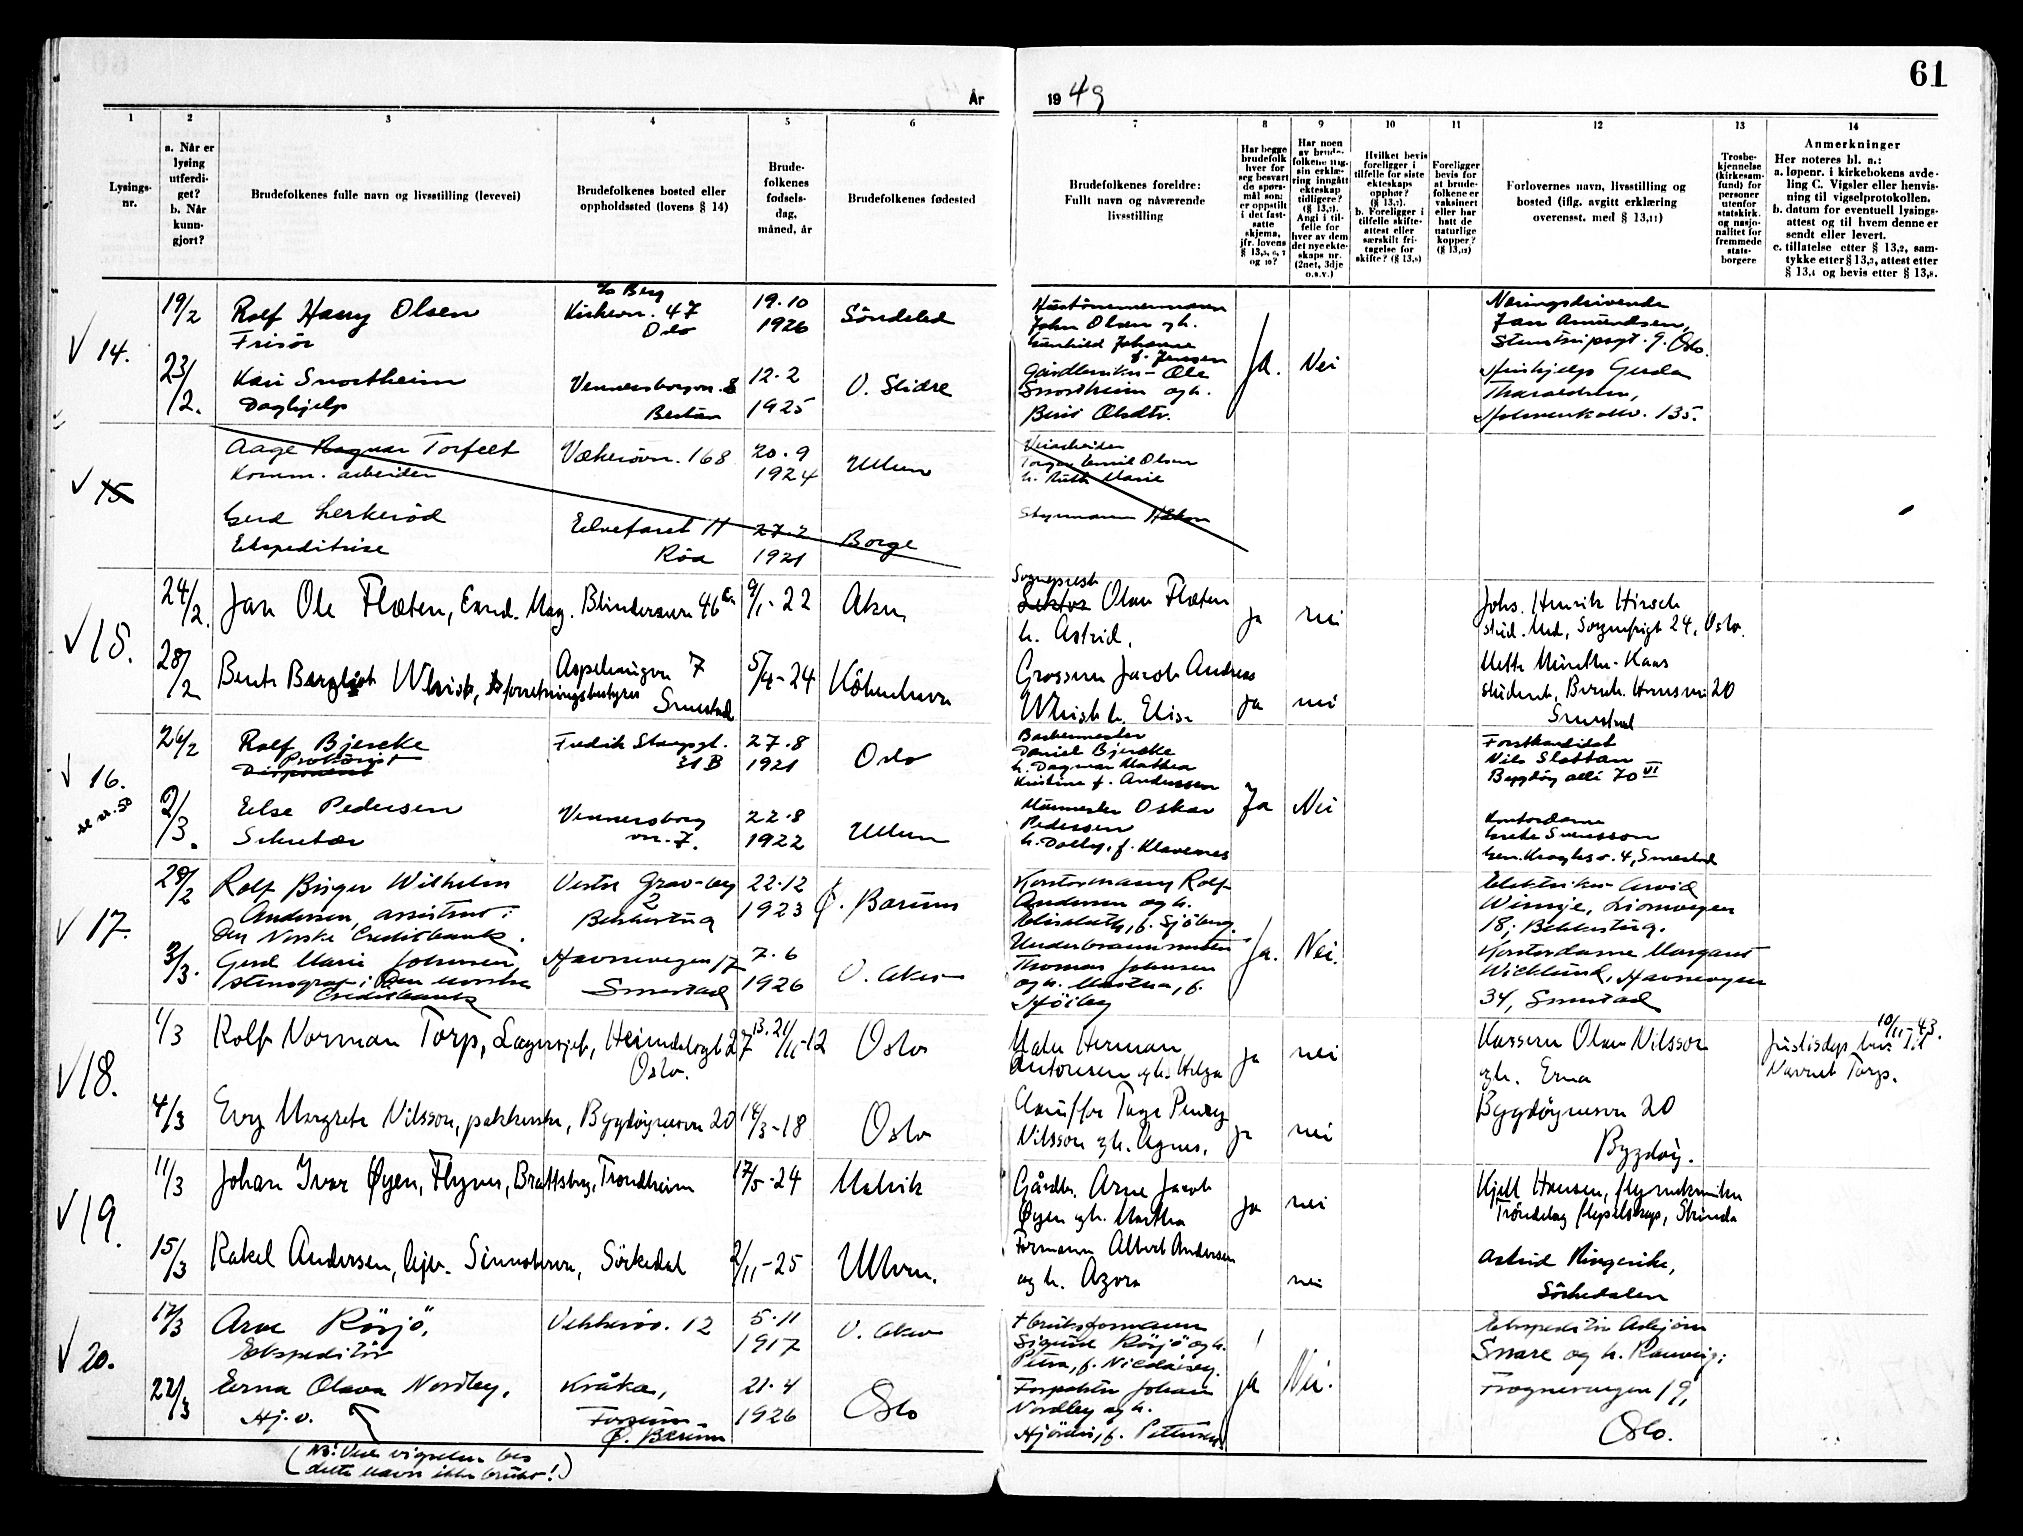 61
År
19 49
1
2
3
4
5
6
7
8
9
10
11
12
13
14
Lysings-
nr.
a. Når er
lysing
utferdi-
get?
b. Når
kunn-
gjort?
Brudefolkenes fulle navn og livsstilling (levevei)
Brudefolkenes bosted eller
oppholdssted (lovens § 14)
Brude-
folkenes
fødsels-
dag,
måned, år
Brudefolkenes fødested
Brudefolkenes foreldre:
Fullt navn og nåværende
livsstilling
Har begge
brudefolk
hver for
seg besvart
de spørs-
mål som
er oppstilt
i det fast-
satte
skjema,
jfr. lovens
§ 13,5, 6, 7
og 10?
Har noen
av brude-
folkene iflg.
sin erklæ-
ring inngått
ekteskap
tidligere?
(§ 13,7).
Angi i til-
felle for
hver av dem
det nye ekte-
skaps nr.
(2net, 3dje
o.s.v.)
Hvilket bevis
foreligger i
tilfelle for siste
ekteskaps
opphør?
(§ 13,7).
b. Foreligger i
tilfelle skifte-
attest eller
særskilt fri-
tagelse for
skifte? (§ 13,8)
Foreligger
bevis for
at brude-
folkene er
vaksinert
eller har
hatt de
naturlige
kopper?
(§ 13,12)
Forlovernes navn, livsstilling og
bosted (iflg. avgitt erklæring
overensst. med § 13,11)
Trosbe-
kjennelse
(kirkesam-
fund) for
personer
utenfor
statskirk.
og nasjo-
nalitet for
fremmede
stats-
borgere
Anmerkninger
Her noteres bl. a.:
a. løpenr. i kirkebokens avde-
ling C. Vigsler eller henvis-
ning til vigselprotokollen.
b. datum for eventuell lysings-
attest og til hvem denne er
sendt eller levert.
c. tillatelse etter § 13,2, sam-
tykke etter § 13,3, attest etter
§ 13,4 og bevis etter § 13,8.
14.
19/2
Rolf Harry Olsen
Frisør
c/o Berg
Kirkevn. 47
Oslo
19.10
1926
Søndeled
John Olsen og h.
Gunhild Johanne
f. Jensen
Ja.
Nei
Næringsdrivende
Jan Amundsen,
Stenstrupsgt. 9. Oslo.
23/2.
Kari Snortheim
Daghjelp
Vennersborgvn. 8
Bestun
12.2
1925
V. Slidre
Gårdbruker Ole
Snortheim og h.
Berit Olsdtr.
Gerda
Tharaldsen,
Holmenkollv. 135.
15
Aage Ragnar Torfelt
Komm. arbeider
Vækerøvn. 168
20.9
1924
Ullern
Veiarbeider
Torger Emil Olsen
h. Ruth Marie
Gerd Lerkerød
Ekspeditrise
Eilvefaret 11
Røa
27.2
1921
Borge
Styrmann Håkon
15.
24/2.
Jan Ole Flæten, Cand. Mag.
Blindernvn 46
9/1-22
Aker
Sogneprest
Lektor Olav Flæten
h. Astrid.
Ja
nei
Johs. Henrik Hirsch
stud. Med, Sorgenfrigt 24, Oslo.
28/2
Bente Bergliot, forretningsbestyrer
7
Smestad
5/4-24
København
Grosserer Jacob Andreas
h. Elise
Ja
nei
Mette Münther-Kaas
student, 20
Smestad
16.
se nr. 50
26/2
Rolf Bjercke
Prokurist
Disponent
Fredrik Stangsgt.
31 B
27.8
1921
Oslo
Daniel Bjercke
h. Dagmar Mathea
Kristine f. Anderssen
Ja
Nei
Forstkandidat
Nils Slattan
Bygdøy allé 70 VI
2/3.
Else Pedersen
Sekretær
Vennersborg
vn. 7.
22.8
1922
Ullern
Murmester Oskar
Pedersen
h. Dolly, f. Klavenes
Kontordame
Grete Svensson
Gen. Kroghs v. 4, Smestad
17.
28/2
Rolf Birger Wilhelm
Andersen, assistent i
Den Norske Creditbank.
Vestre Grav-vej
2
Bekkestua
22.12
1923
Ø. Bærum
Rolf
Andersen og h.
Elisabeth, f. Sjøberg.
Ja.
Nei.
Elektriker Arvid
Winsje, Liomvegen
18; Bekkestua.
3/3.
Gerd Marie Johnsen
stenograf i Den Norske
Creditbank
Havnevegen 17
Smestad
7.6
1926
V. Aker
Underbrannmester
Thomas Johnsen
og h. Martha, f.
Høiby
Kontordame Margaret
Wicklund, Havnevegen
34, Smestad
18.
1/3
Rolf Norman Torp, Lagersjef,
Heimdalsgt 27
Oslo.
21/11-12
Oslo
Maler Herman
Antonsen og h. Helga
Ja
nei
Kasserer Olav Nilsson
og h. Erna
Bygdøynesvn 20
Bygdøy.
10/11-43.
Justisdep. bev. til
Navnet Torp.
4/3
Evy Margrete Nilsson, pakkerske,
Bygdøynesvn 20
14/3-18
Oslo
Nilsson og h. Agnes.
Ja
nei
19.
11/3
Johan Ivar Øyen, Flyver,
Brattsbrg, Trondheim
17/5-24
Malvik
Gårdbr. Arne Jacob
Øyen og h. Martha
Ja
nei
Kjell Hansen, flymekaniker
Trøndelag flyselskap, Strinda
15/3
Rakel Andersen,
Sørkedal
2/11-25
Ullern.
Formann Albert Andersen
og h. Azora
nei
Astrid Ringerike,
Sørkedalen
20.
17/3
Arve Rösjö,
Ekspeditør
Vekkerøv. 12
5.11
1917
V. Aker
Sigurd Rösjö og h.
Petra, f. Nicolaisen
ja
Nei.
Ekspeditør Asbjørn
Snare og h. Rannveig;
Frognervegen 19,
Oslo.
22/3
Erna Olava Nordby,
Hj.v.
Kråka,
Fossum
Ø. Bærum
21.4
1926
Oslo
Forpakter Johan
Nordby og h.
Hjördis, f. Pettersen
(NB: Ved vigselen bes
dette navn ikke brukt!)